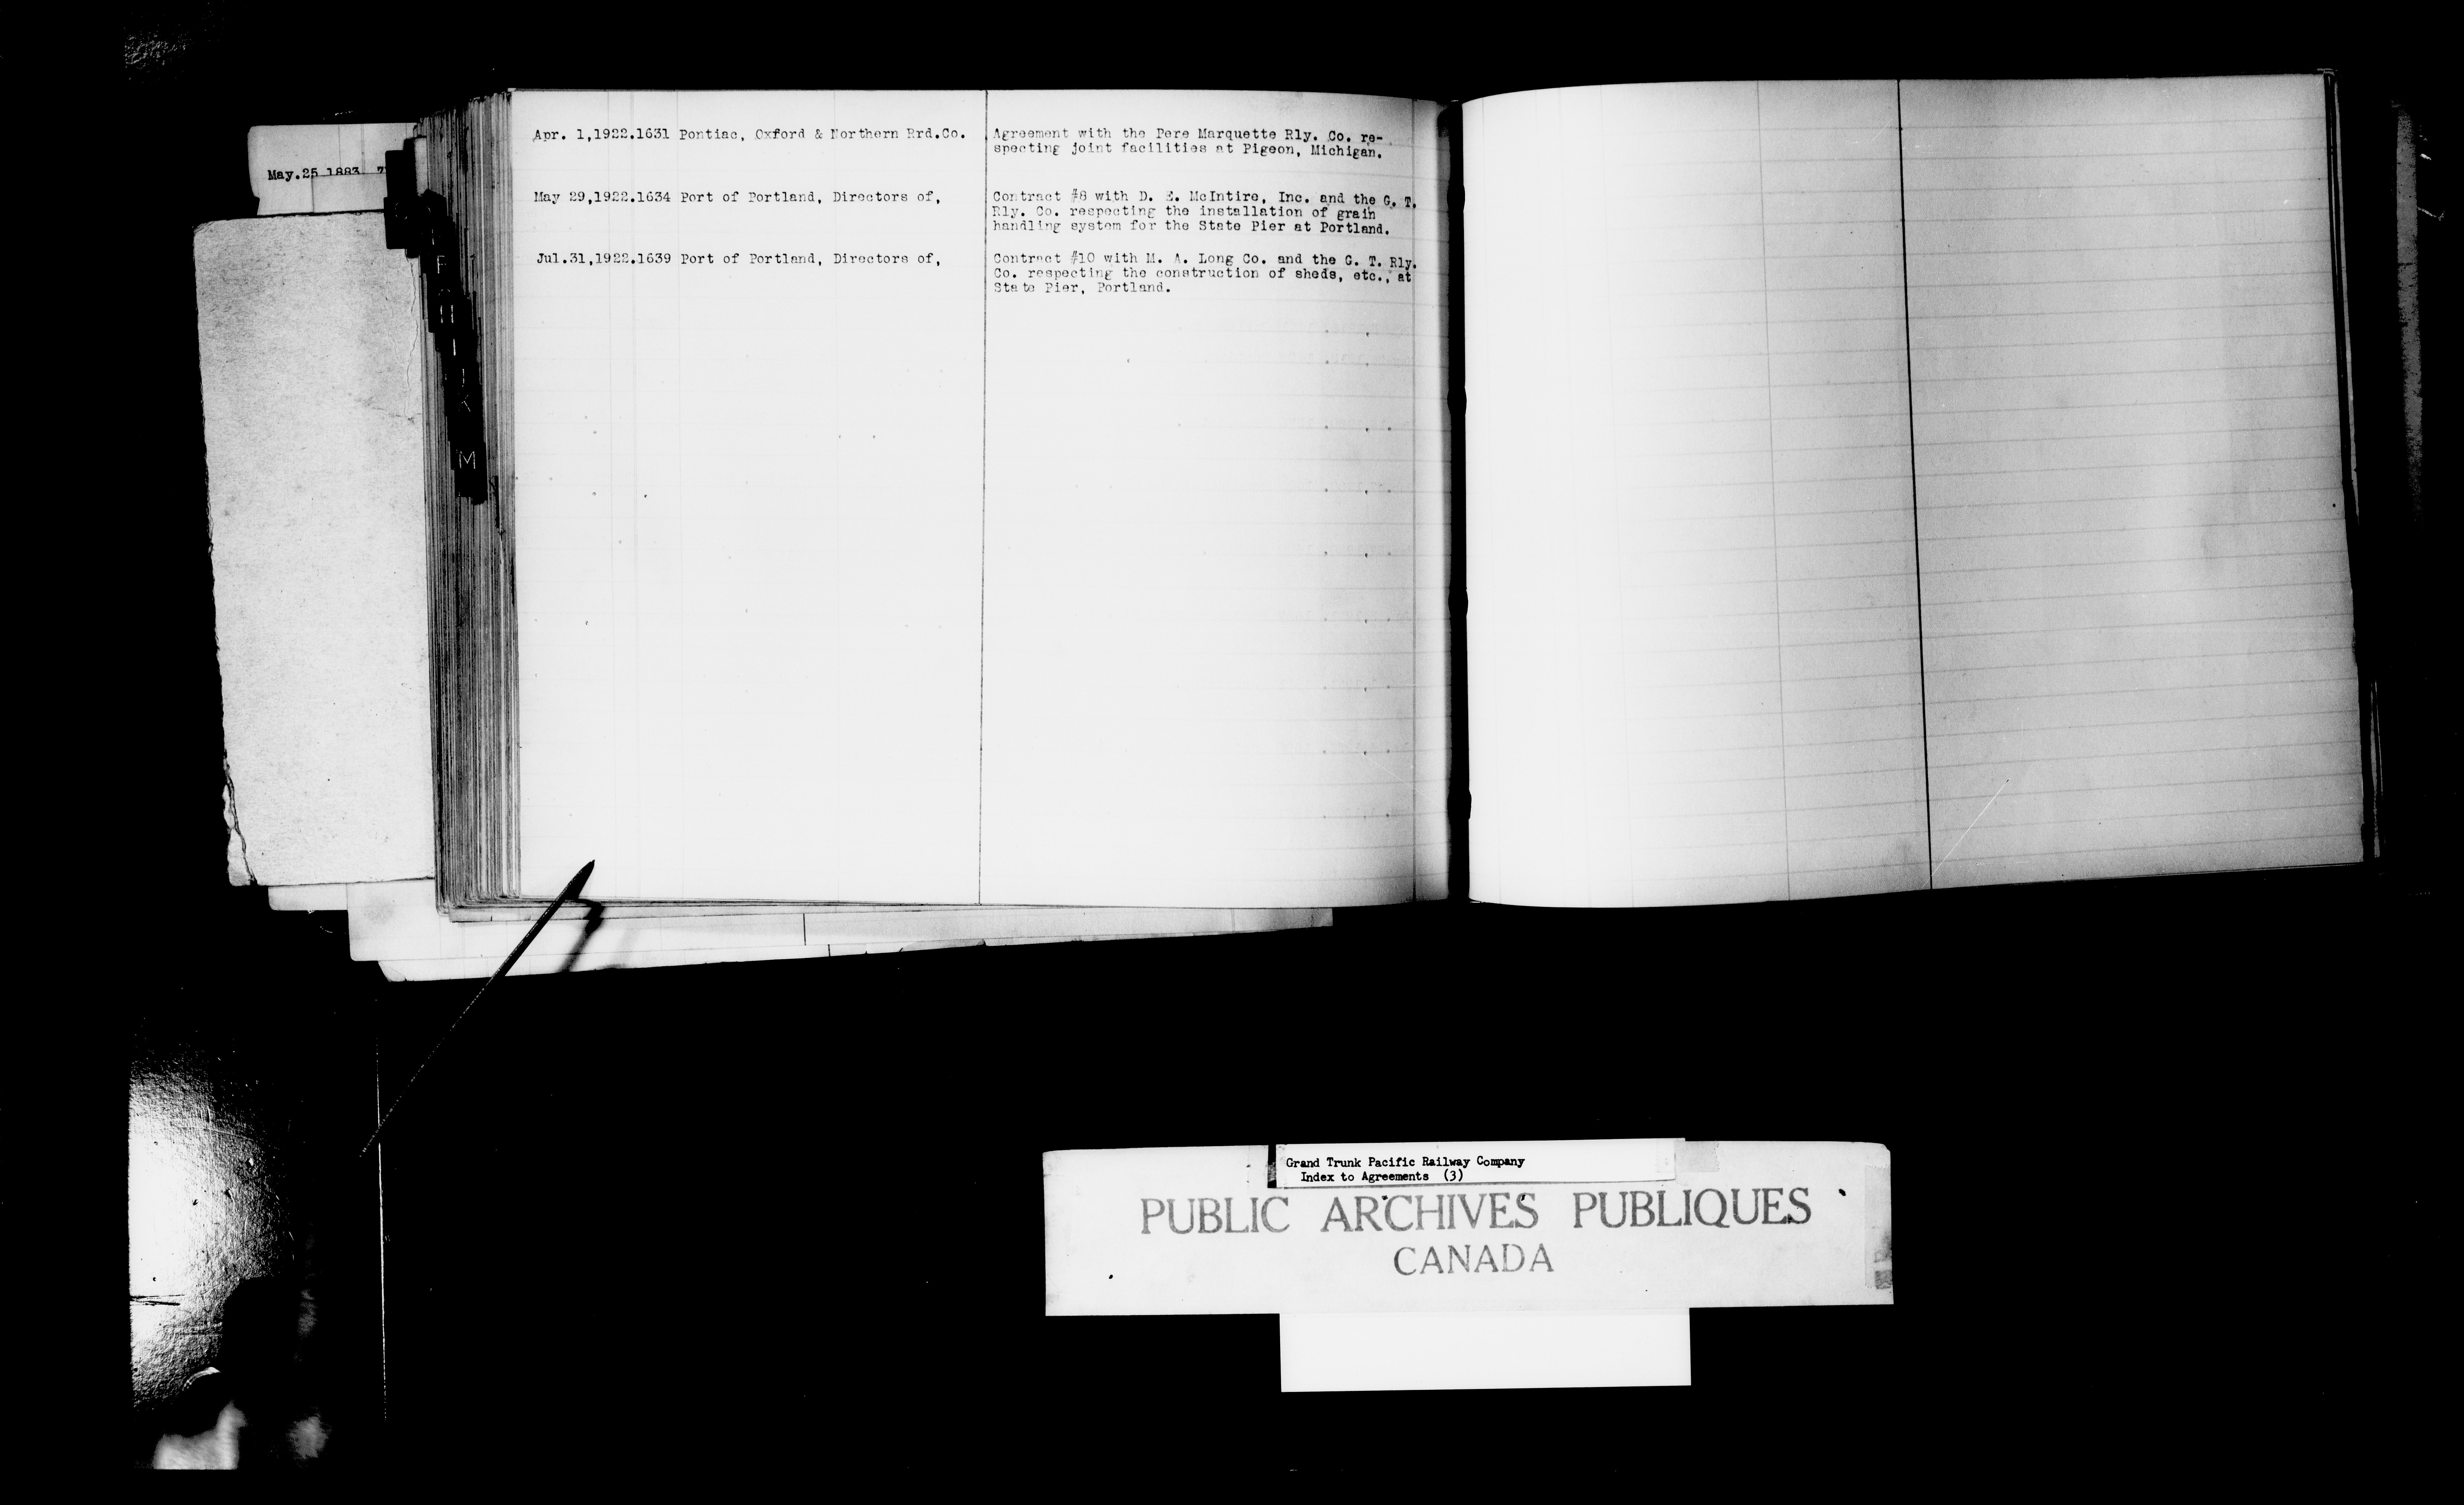 May.25 1883
Apr. 1,1922.1631 Pontiac, Oxford & Northern Rrd.Co.
Agreement with the Pere Marquette Rly. Co. re-
specting joint facilities at Pigeon, Michigan.
May 29,1922.1634 Port of Portland, Directors of,
Contract #8 with D. E. McIntire, Inc. and the G. T.
Rly. Co. respecting the installation of grain
handling system for the State Pier at Portland.
Jul.31,1922.1639 Port of Portland, Directors of,
Contract #10 with M. A. Long Co. and the G. T. Rly.
Co. respecting the construction of sheds, etc., at
State Pier, Portland.
F
H
I
J
K
M
Grand Trunk Pacific Railway Company
Index to Agreements (3)
PUBLIC ARCHIVES PUBLIQUES
CANADA